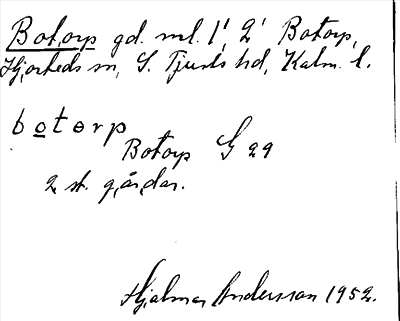 Botorp gd. ml. 1, 2 Botorp,
Hjorteds sn, S. Tjusts hd, Kalm. l.
botorp
Botorp G 29
2 st. gårdar.
Hjalmar Andersson 1952.